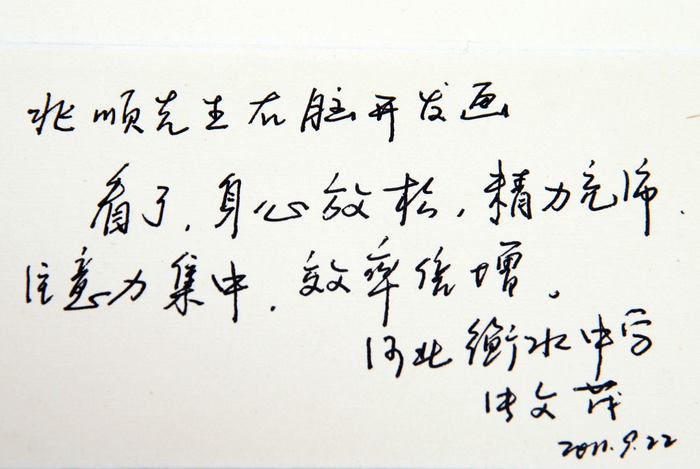 兆顺先生右脑开发画
看了,身心放松,精力充沛.
注意力集中,效率倍增。
河北衡水中学
张文茂
2011.9.22